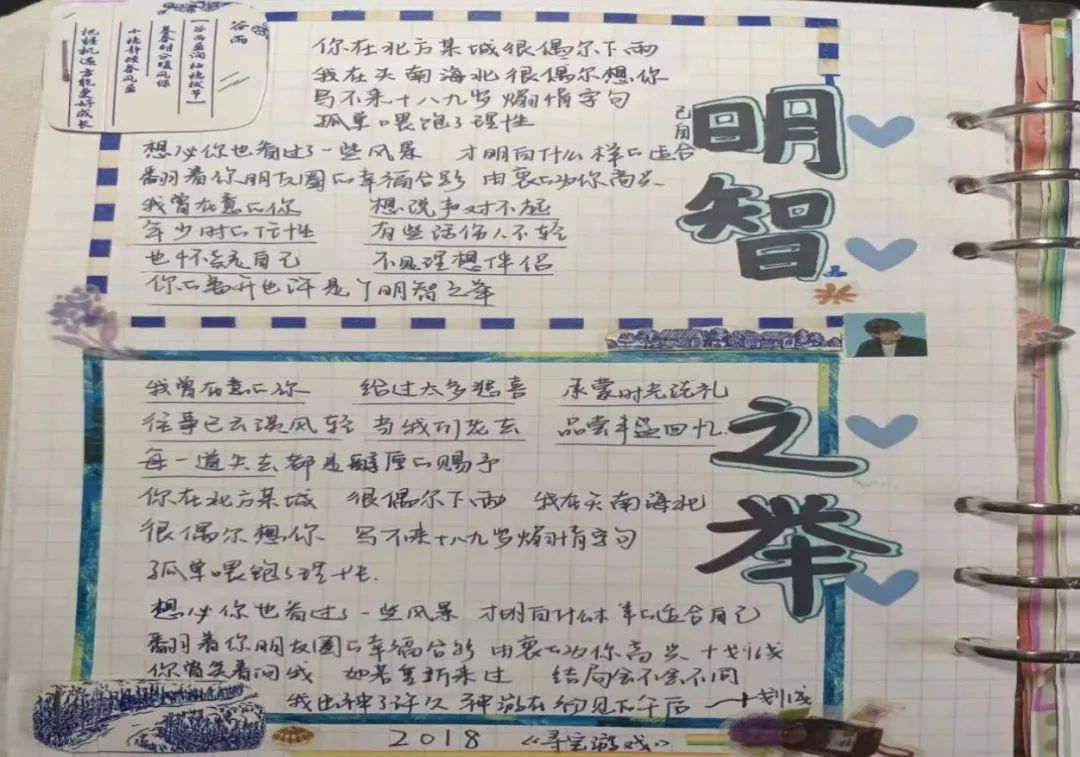 谷雨
【谷雨
暮春时分暖风假
小
把握机遇 方能更好成长
你在北方某城很偶尔下雨
我在天南海北很偶尔想你
写不来十八九岁煽情字句
孤单喂饱了理性
想必你也看过了一些风景 才明白什么样的适合
自己
翻着你朋友圈的幸福合影 由衷的为你高兴
我曾在意的你 想说声对不起
年少时的任性 有些话伤人不轻
也怀疑自己 不见理想伴侣
你的离开也许是个明智之举
明智
之举
我曾在意的你 给过太多悲喜 承蒙时光洗礼
往事已云淡风轻 当我们失去 品尝丰盛回忆
每一道失去都是 的赐予
你在北方某城 很偶尔下雨 我在天南海北
很偶尔想你 写不来十八九岁煽情字句
孤单喂饱了理性
想必你也看过了一些风景 才明白什么样的适合自己
翻着你朋友圈的幸福合影 由衷的为你高兴 十划线
你曾笑着问我 如若重新来过 结局会不会不同
我出神了许久 神游在初见下午后 一十划线
2018 《寻宝游戏》